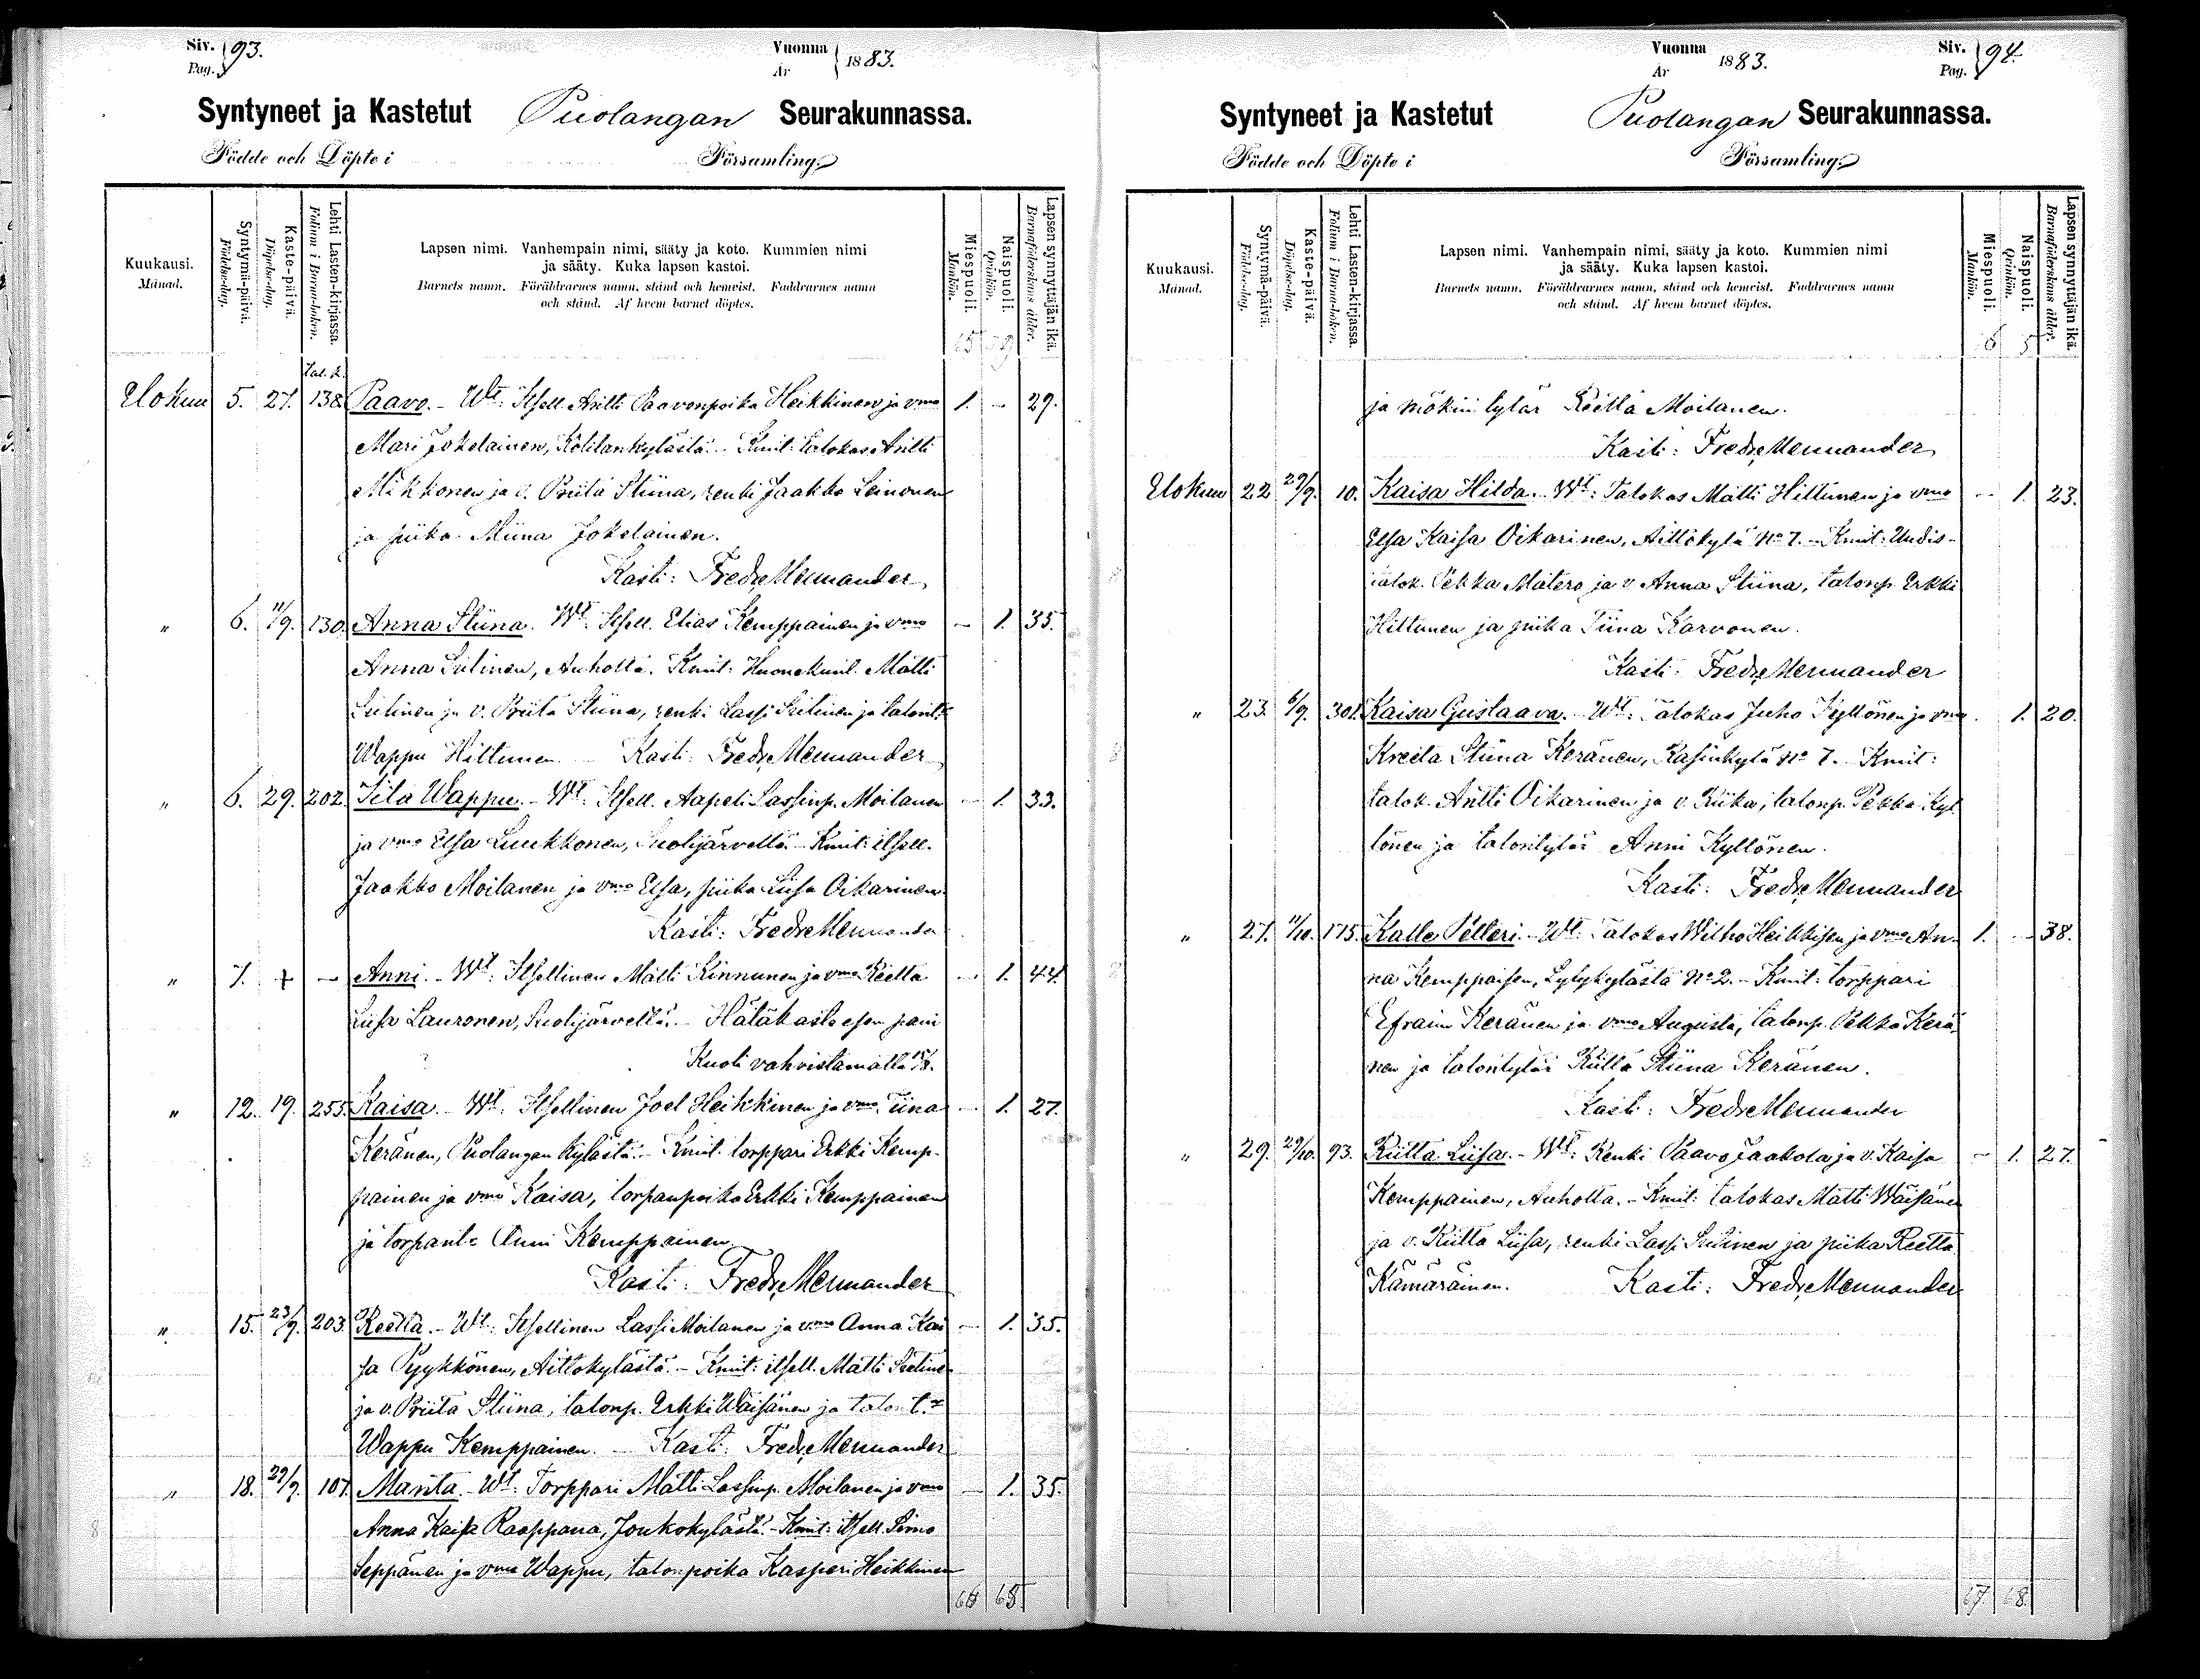 Siv. Pag. 93. Vuonna År 1883.
Syntyneet ja Kastetut Puolangan Seurakunnassa.
Födde och Döpte i Församling.
Kuukausi. Månad.
Syntymä-päivä. Födelse-dag.
Kaste-päivä. Döpelse-dag.
Lehti Lasten-kirjassa. Folium i Barna-boken.
Lapsen nimi. Vanhempain nimi, sääty ja koto. Kummien nimi
ja sääty. Kuka lapsen kastoi.
Barnets namn. Föräldrarnes namn, stånd och hemvist. Faddrarnes namn
och stånd. Af hvem barnet döptes.
Miespuoli. Mankön.
Naispuoli. Qvinkön.
Lapsen synnyttäjän ikä. Barnaföderskans ålder.
Elokuu 5. 27. 138. Paavo. - Wt: Itsell. Antti Paavonpoika Heikkinen ja vmo 1. - 29.
Mari Jokelainen, Kotilankylästä. - Kmit: talokas Antti
Mikkonen ja v. Priita Stiina, renki Jaakko Leinonen
ja piika Miina Jokelainen.
Kasti: Fredr. Mennander
" 6. 11/9. 130. Anna Stiina. Wt: Itsell. Elias Kemppainen ja vmo - 1. 35.
Anna Sutinen, Auholta. Kmit: Huonekunt. Matti
Sutinen ja v. Priita Stiina, renki Lassi Sutinen ja talont:r
Wappu Hiltunen Kasti: Fredr. Mennander
" 6. 29. 202. Iita Wappu. - Wt: Itsell. Aapeli Lassinp. Moilanen - 1. 33.
ja vmo Elsa Luukkonen, Suolijärveltä. - Kmit: itsell.
Jaakko Moilanen ja vmo Elsa, piika Liisa Oikarinen.
Kasti: Fredr. Mennander
" 7. + - Anni. - Wt: Itsellinen Matti Kinnunen ja vmo Reetta - 1. 44.
Liisa Lauronen, Suolijärveltä. - Hätäkasteesen
Kuoli vahvistamatta
" 12. 19. 255. Kaisa. - Wt: Itsellinen Joel Heikkinen ja vmo Tiina - 1. 27.
Keränen, Puolangan kylästä. - Kmit: torppari Erkki Kemp-
painen ja vmo Kaisa, torpanpoika Erkki Kemppainen
ja torpant:r Anni Kemppainen.
Kasti: Fredr. Mennander
" 15. 23/9. 203. Reetta. - Wt: Itsellinen Lassi Moilanen ja vmo Anna Kai - 1. 35.
sa Pyykkönen, Aittokylästä. - Kmit: itsell. Matti Sutinen
ja v. Priita Stiina, talonp. Erkki Wäisänen ja talont:r
Wappu Kemppainen. - Kasti: Fredr. Mennander
" 18. 29/9. 107. Marita. Wt: Torppari Matti Lassinp. Moilanen ja vmo - 1. 35.
Anna Kaisa Raappana, Joukokylästä. - Kmit: itsell. Simo
Seppänen ja vmo Wappu, talonpoika Kasperi Heikkinen
Vuonna År 1883. Siv. Pag. 94.
Syntyneet ja Kastetut Puolangan Seurakunnassa.
Födde och Döpte i Församling.
Kuukausi. Månad.
Syntymä-päivä. Födelse-dag.
Kaste-päivä. Döpelse-dag.
Lehti Lasten-kirjassa. Folium i Barna-boken.
Lapsen nimi. Vanhempain nimi, sääty ja koto. Kummien nimi
ja sääty. Kuka lapsen kastoi.
Barnets namn. Föräldrarnes namn, stånd och hemvist. Faddrarnes namn
och stånd. Af hvem barnet döptes.
Miespuoli. Mankön.
Naispuoli. Qvinkön.
Lapsen synnyttäjän ikä. Barnaföderskans ålder.
6 5
ja mökin tytär Reetta Moilanen.
Kasti: Fredr. Mennander
Elokuu 22 29/9. 10. Kaisa Hilda. - Wt: Talokas Matti Hiltunen ja vmo - 1. 23.
Elsa Kaisa Oikarinen, Aittokylä No 7. - Kmit: Uudis-
talok. Pekka Matero ja v. Anna Stiina, talonp. Erkki
Hiltunen ja piika Tiina Karvonen.
Kasti: Fredr. Mennander
" 23. 6/9. 301. Kaisa Gustaava. - Wt: Talokas Juho Kyllönen ja vmo - 1. 20.
Kreeta Stiina Keränen, Kasinkylä No 7. - Kmit:
talok. Antti Oikarinen ja v. Riika, talonp. Pekka Kyl
lönen ja talontytär Anni Kyllönen.
Kasti: Fredr. Mennander
" 27. 11/10. 175. Kalle Pelleri. - Wt: Talokas Wilho Heikkisen ja vmo An- 1. - 38.
na Kemppaisen, Lylykylästä No 2. - Kmit: torppari
Efraim Keränen ja vmo Augusta, talonp. Pekka Kerä-
nen ja talontytär Riitta Stiina Keränen.
Kasti: Fredr. Mennander
" 29. 29/10. 93. Riitta Liisa. - Wt: Renki Paavo Jaakola ja v. Kaisa - 1. 27.
Kemppainen, Auholta. - Kmit: talokas Matti Wäisänen
ja v. Riitta Liisa, renki Lassi Sutinen ja piika Reetta
Kämäräinen. Kasti: Fredr. Mennander
67 68.